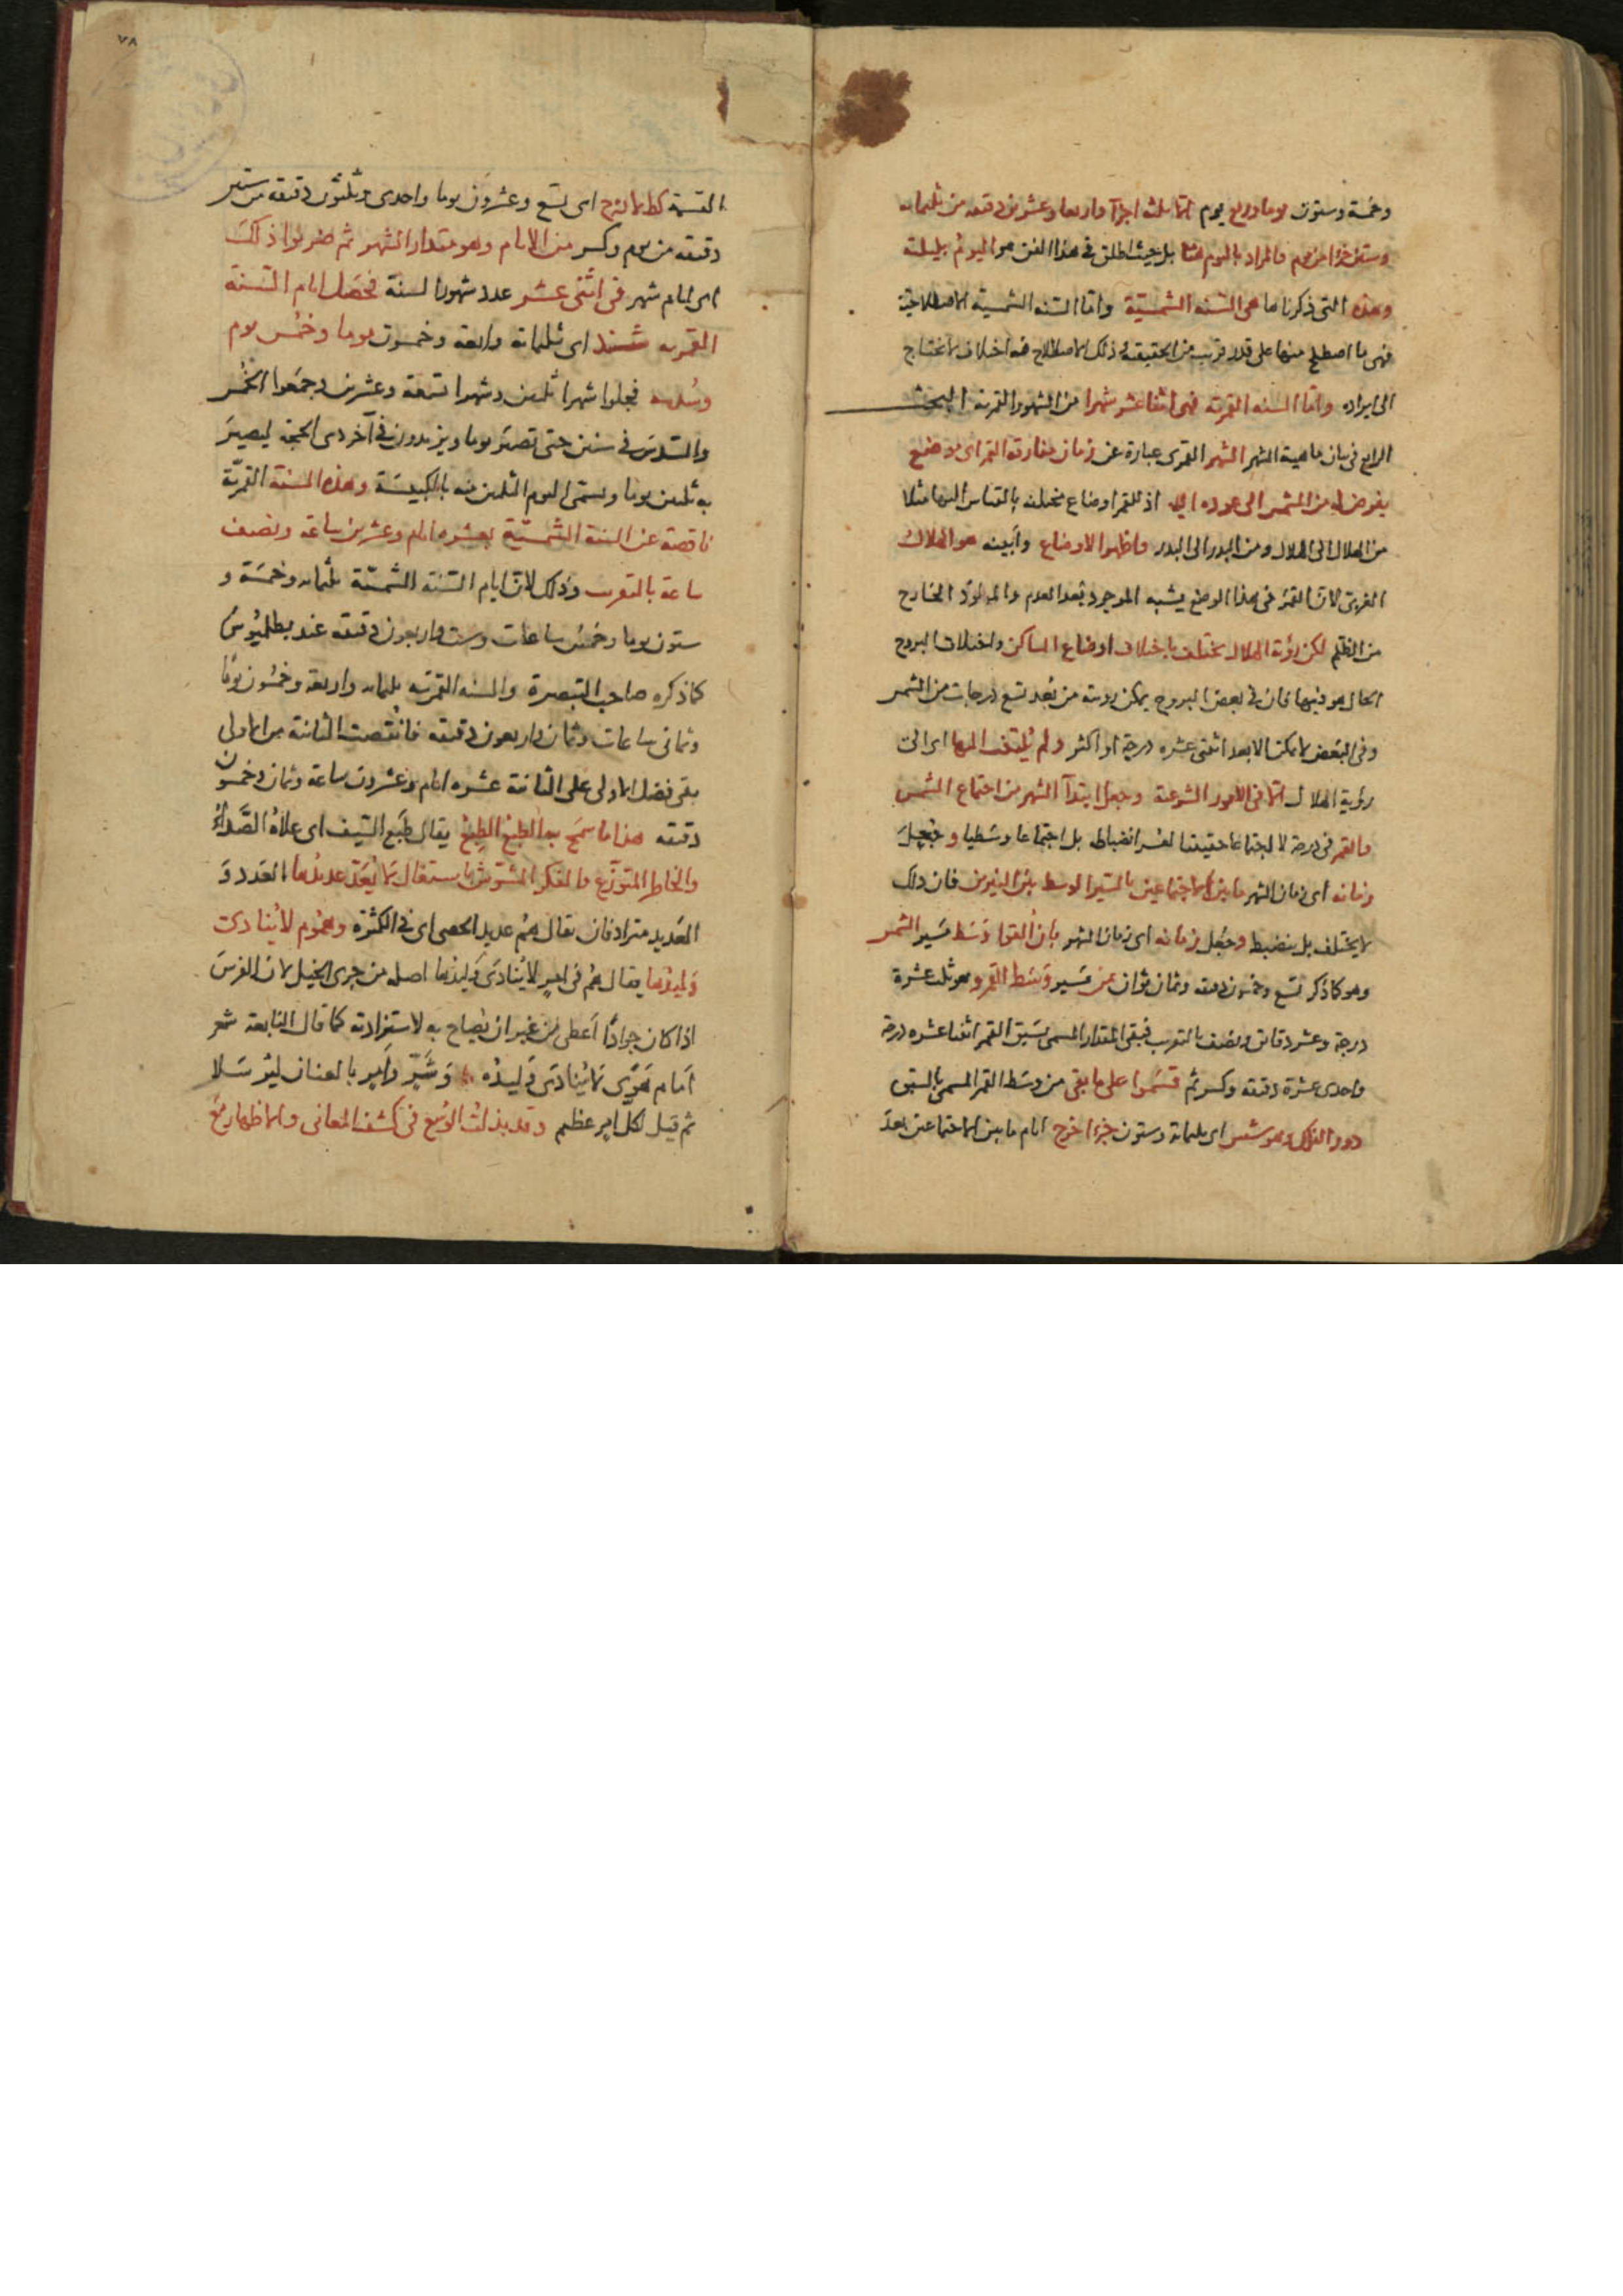 وخمسة وستون يوما وربع يوم الا ثلثة اجزآ واربعا وعشرين دقيقه من ثلثمايه
وستين جزءا من يوم فالمراد باليوم هنا بل حيث اطلق في هذا الفن هو اليوم بليلته
وهذه التي ذكرناها هي السنه الشمسيّة واما السنه الشمسية الاصطلاحية
فهى ما اصطلح عليها على قدر قريب من الحقيقة وذلك الاصطلاح فيه اختلاف لا نحتاج
الى ايراده واما السنه القمريه فهى اثنا عشر شهرا من الشهور القمريه البحث
الرابع في بيان ماهية الشهر الشهر القمرى عبارة عن زمان مفارقة القمر اى وضع
يفرض له من الشمس الى عوده اليه اذ للقمر اوضاع مختلفه بالقياس اليها مثلا
من الهلال الى الهلال ومن البدر الى البدر واظهر الاوضاع وأبينه هو الهلال
الغربى لان القمر في هذا الوضع يشبه الموجود بعد العدم والمولود الخارج
من الظلم لكن رؤية الهلال يختلف باختلاف اوضاع المساكن واختلاف البروج
الحال هو فيها فان في بعض البروج يمكن رويته من بُعد تسع درجات من الشمس
وفي البعض لا يمكن الا بعد اثنتى عشره درجة او اكثر ولم يُلتفت اليها اى الى
رؤية الهلال الا في الامور الشرعية وجعل ابتدآ الشهر من اجتماع الشمس
والقمر في درجة لا اجتماعا حقيقيا لعسر انضباطه بل اجتماعا وسطيا وجعل
زمانه اى زمان الشهر ما بين الاجتماعين بالمسير الوسط بين النيرين فان ذلك
لا يختلف بل ينضبط وجُعل زمانه اى زمان الشهر بان ألقوا وَسَط مَسير الشمس
وهو كما ذكر تسع وخمسون دقيقه وثمان ثوان من مَسير وَسَط القمر وهو ثلث عشرة
درجة وعشر دقائق ونصف بالتقريب فبقى المقدار المسمى بسَبق القمر اثنا عشره درجة
واحدى عشرة دقيقه وكسر ثم قسَموا على ما بقى من وسَط القمر المسمى بالسبق
دور الفلك وهو شس اى ثلثمائة وستون جزءا خرج ايام ما بين الاجتماعين بعد
القسمة كط لا نح اى تسع وعشرون يوما واحدى وثلثون دقيقه من ستين
دقيقه من يوم وكسر من الايام وهو مقدار الشهر ثم ضربوا ذلك
اى ايام شهر في اثنى عشر عدد شهور السنة فحصَل ايام السَنة
القمريه شند اى ثلثمائة واربعة وخمسون يوما وخمُس يوم
وسُدسه فجعلوا شهرا ثلثين وشهرا تسعة وعشرين وجمَعوا الخُمس
والسُدس في سنين حتى تصير يوما ويزيدون في آخر ذى الحجة ليصيرَ
به ثلثين يوما ويسمى اليوم الثلثين منه بالكبيسَة وهذه السنة القمريّة
ناقصة عن السنة الشمسيّة بعشره ايام وعشرين ساعة ونصف
ساعة بالتقريب وذلك لانّ ايام السَنة الشمسيّة ثلثمايه وخمسَة و
ستون يوما وخمسُ ساعات وست واربعون دقيقه عند بطلميُوسَ
كما ذكره صاحب التبصرة والسنه القمريه ثلثمايه واربعة وخمسُون يومًا
وثمانى ساعات وثمان واربعون دقيقه فاذا نقصت الثانية من الاولى
بقى فضل الاولى على الثانية عشره ايام وعشرون ساعة وثمان وخمسون
دقيقه هذا ما سمَح بها الطبعُ الطِبعُ يقال طَبعَ السَيف اى علاهُ الصَّداءُ
والخاطر المتوزّع والفكر المشوّش باستغال لا يُعَدّ عديدُها العَدد وَ
العَديد مترادفان يقال هُم عديد الحصى اى في الكثرة وهُمُوم لا يُنادى
وَليدُها يقال هُم في امرٍ لا يُنادى وَليدُها اصله من جرى الخيل لان الفرسَ
اذا كان جوادًا أعطى مِن غير ان يُصاح به لاستزادته كما قال النابعة شعر
أمام هَوىّ لا يُنادَى وَليدُه وَشَدٍّ وأمرٍ بالعنان ليُرسَلا
ثم قيل لكل امر عظيم وقد بذلتُ الوُسع في كشف المعانى والاظهار مَعَ
٧٨